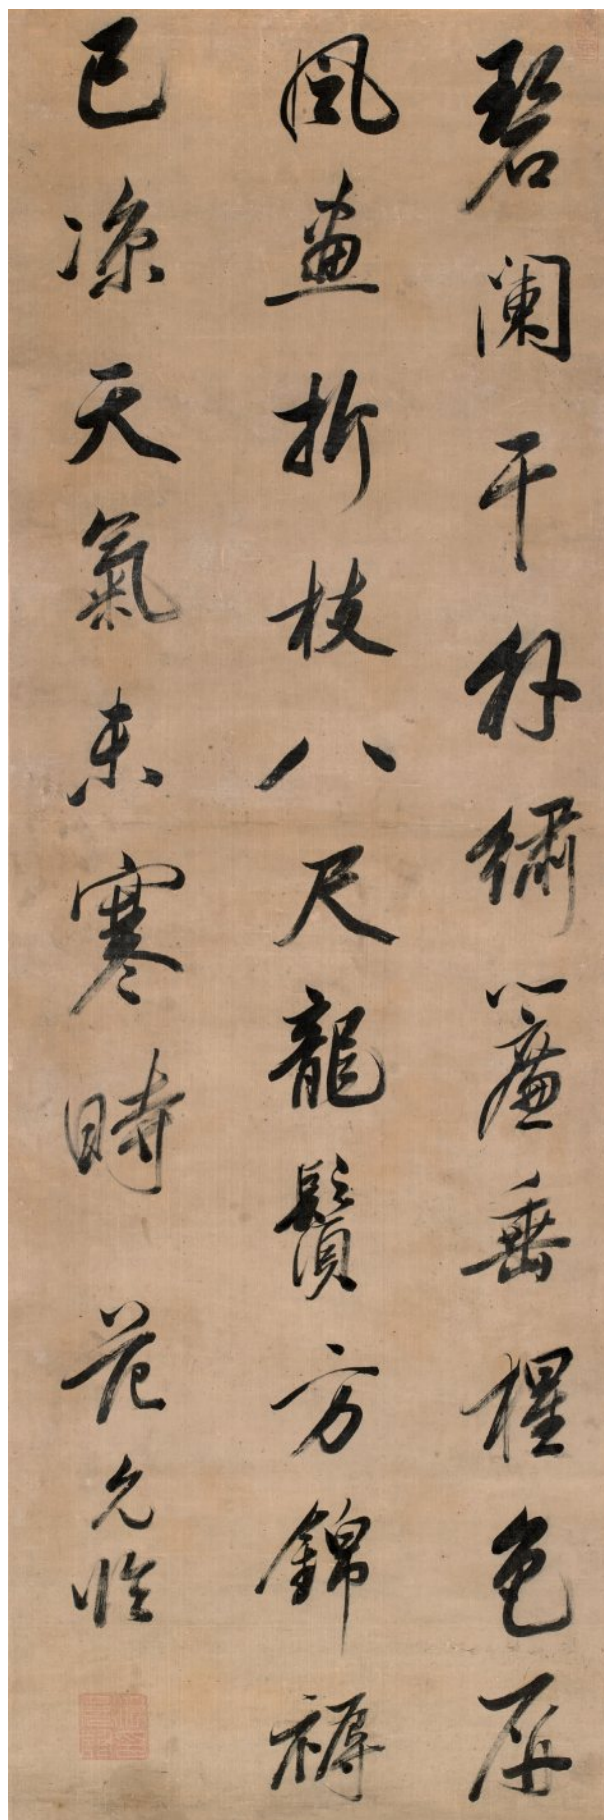 碧闌干外繡簾垂猩色屏
風畫折枝八尺龍鬚方錦褥
已涼天氣未寒時 范允臨